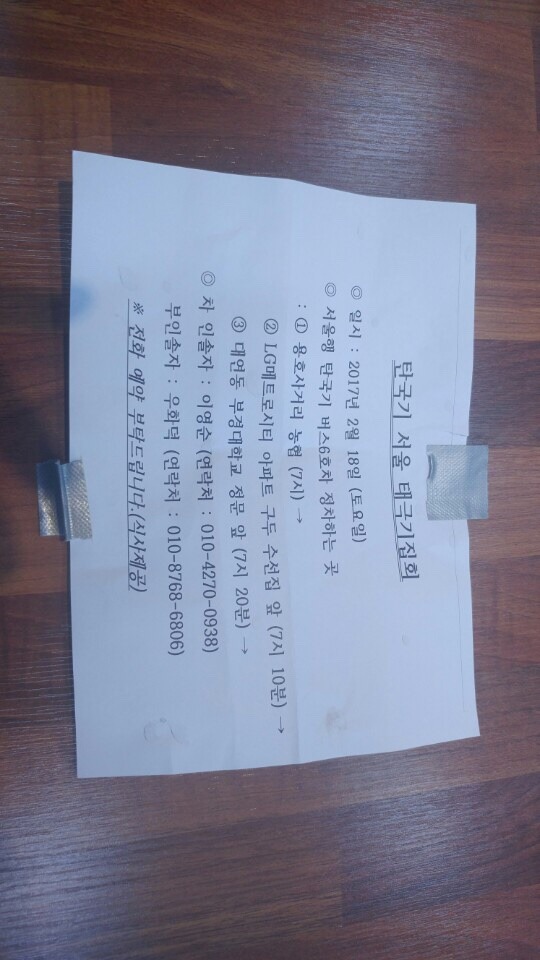 탄국기 서울 태극기집회
◎ 일시 : 2017년 2월 18일 (토요일)
◎ 서울행 탄국기 버스6호차 정차하는 곳
: ① 용호사거리 농협 (7시) →
② LG메트로시티 아파트 구두 수선집 앞 (7시 10분) →
③ 대연동 부경대학교 정문 앞 (7시 20분) →
◎ 차 인솔자 : 이영순 (연락처 : 010-4270-0938)
부인솔자 : 우화덕 (연락처 : 010-8768-6806)
※ 전화 예약 부탁드립니다.(식사제공)